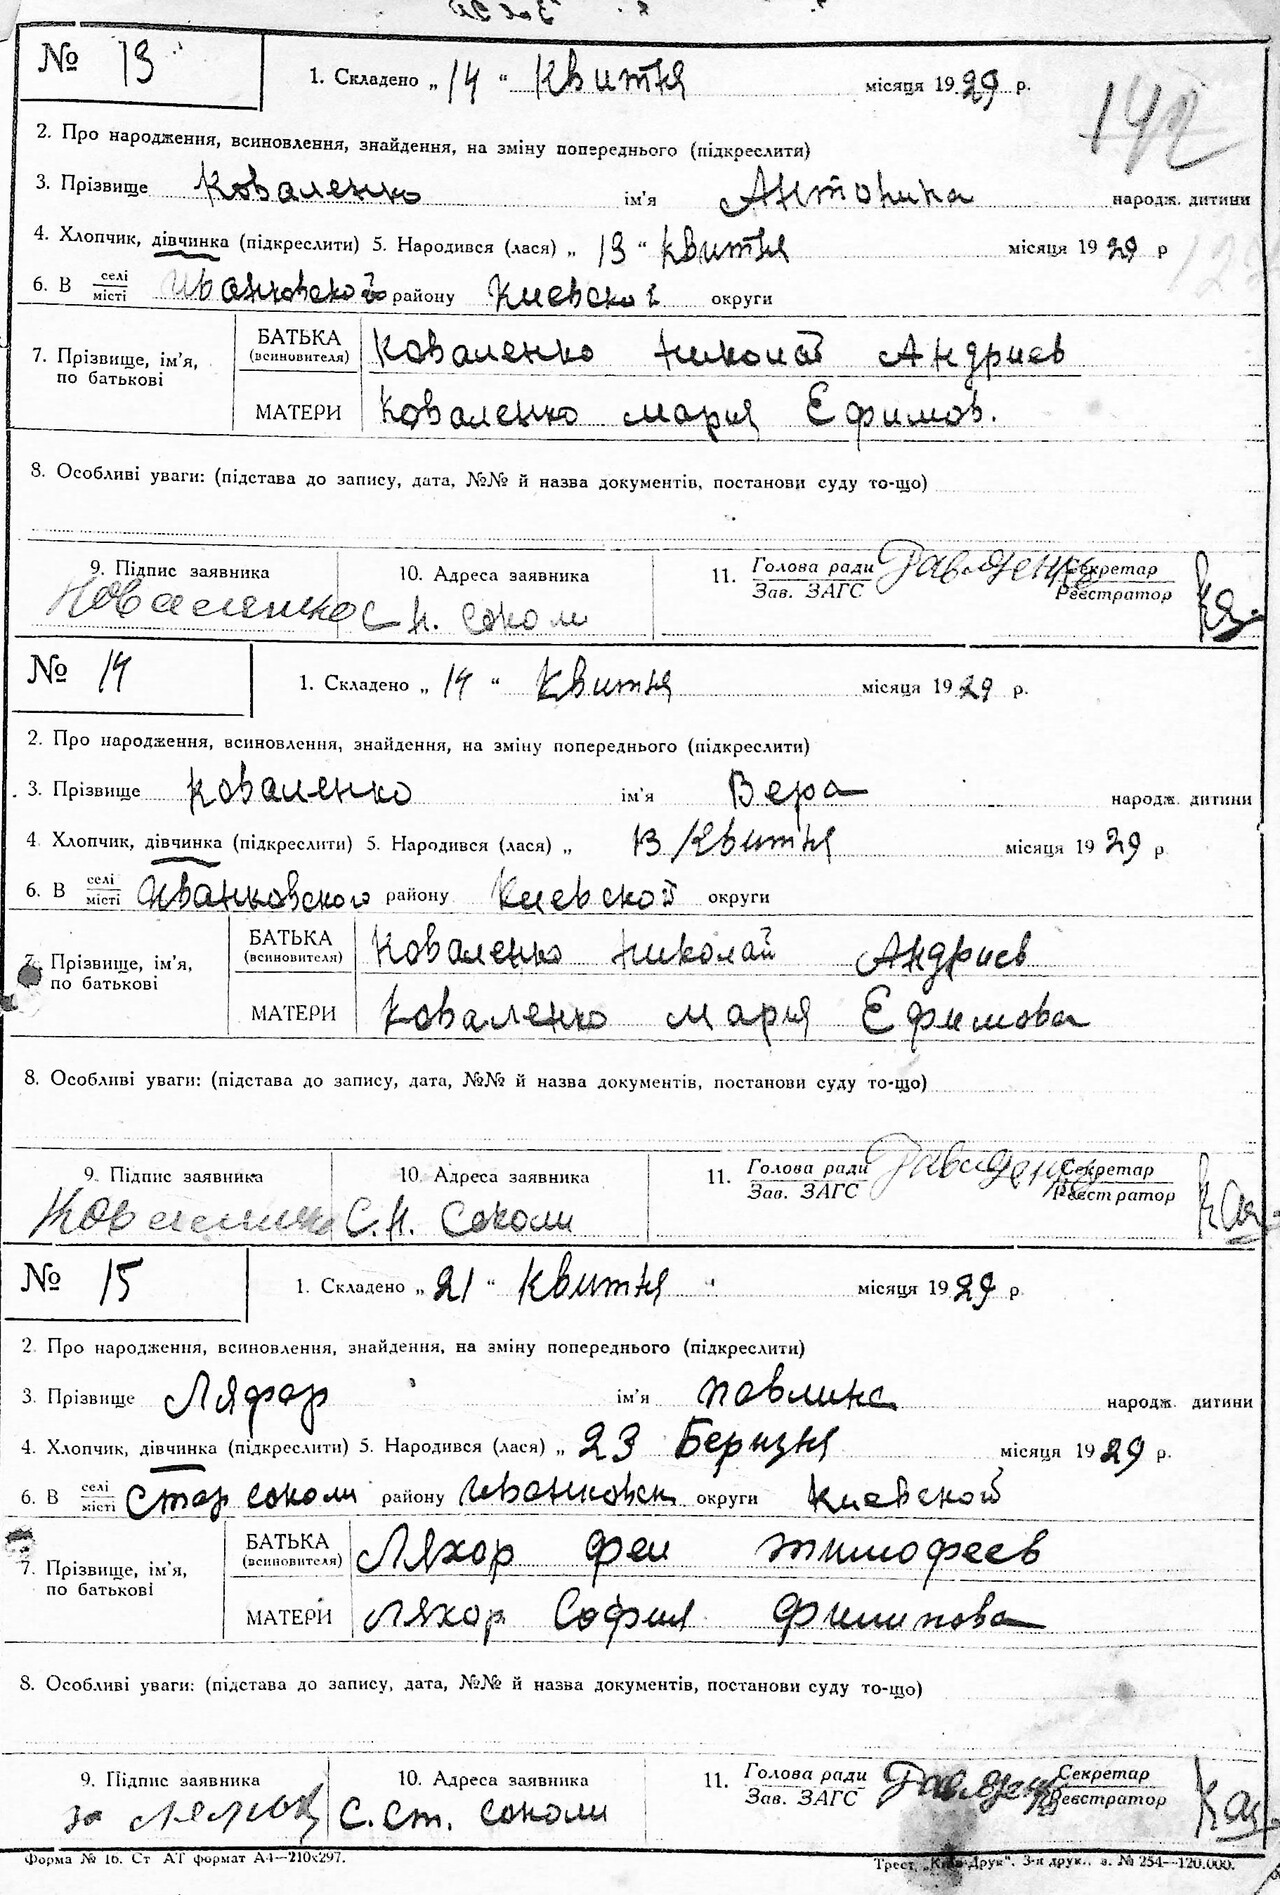 № 13 1. Складено „ 14 “ Квитня місяця 1929 р.
142
2. Про народження, всиновлення, знайдення, на зміну попереднього (підкреслити)
3. Прізвище Коваленко ім'я Антонина народж. дитини
4. Хлопчик, дівчинка (підкреслити) 5. Народився (лася) „ 13 “ Квитня місяця 1929 р
6. В селі місті району Киевской округи
7. Прізвище, ім'я, по батькові БАТЬКА (всиновителя) Коваленко Николай Андриев
МАТЕРИ Коваленко Мария Ефимов.
8. Особливі уваги: (підстава до запису, дата, №№ й назва документів, постанови суду то-що)
9. Підпис заявника 10. Адреса заявника 11. Голова ради Зав. ЗАГС Секретар Реєстратор
Коваленко С. Н. Соколи
№ 14 1. Складено „ 14 “ Квитня місяця 1929 р.
2. Про народження, всиновлення, знайдення, на зміну попереднього (підкреслити)
3. Прізвище Коваленко ім'я Вера народж. дитини
4 Хлопчик, дівчинка (підкреслити) 5. Народився (лася) „ 13 Квитня місяця 1929 р
6. В селі місті Иванковского району Киевской округи
7. Прізвище, ім'я, по батькові БАТЬКА (всиновителя) Коваленко Николай Андриев
МАТЕРИ Коваленко Мария Ефимова
8. Особливі уваги: (підстава до запису, дата, №№ й назва документів, постанови суду то-що)
9. Підпис заявника 10. Адреса заявника 11. Голова ради Зав. ЗАГС Секретар Реєстратор
С. Н. Соколи
№ 15 1. Складено „ 21 “ Квитня місяця 1929 р
2. Про народження, всиновлення, знайдення, на зміну попереднього (підкреслити)
3. Прізвище Ляфор ім'я Павлина народж. дитини
4. Хлопчик, дівчинка (підкреслити) 5. Народився (лася) „ 23 Беризня місяця 1929 р.
6. В селі місті Стар Соколи району Иванковск округи Киевской
7. Прізвище, ім'я, по батькові БАТЬКА (всиновителя) Ляхор Тимофеев
МАТЕРИ Ляхор София Филипова
8. Особливі уваги: (підстава до запису, дата, №№ й назва документів, постанови суду то-що)
9. Підпис заявника 10. Адреса заявника 11. Голова ради Зав. ЗАГС Секретар Реєстратор
за С. Ст. Соколи
Форма № 16. Ст АТ формат А4—210х297. Трест „Київ-Друк“. 3-я друк., з. № 254—120.000.